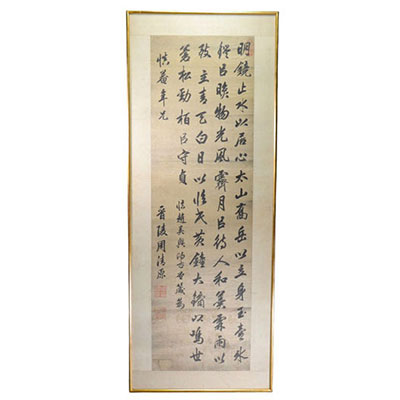 明鏡止水以居心太山喬岳以立身玉壺冰
㠯映物光風霽月㠯待人和羹霖雨以
致主青天白日以臨民黃鐘大鏞以鳴世
蒼松勁柏㠯守貞 趙吳興
慎菴年兄
晉陵周清原